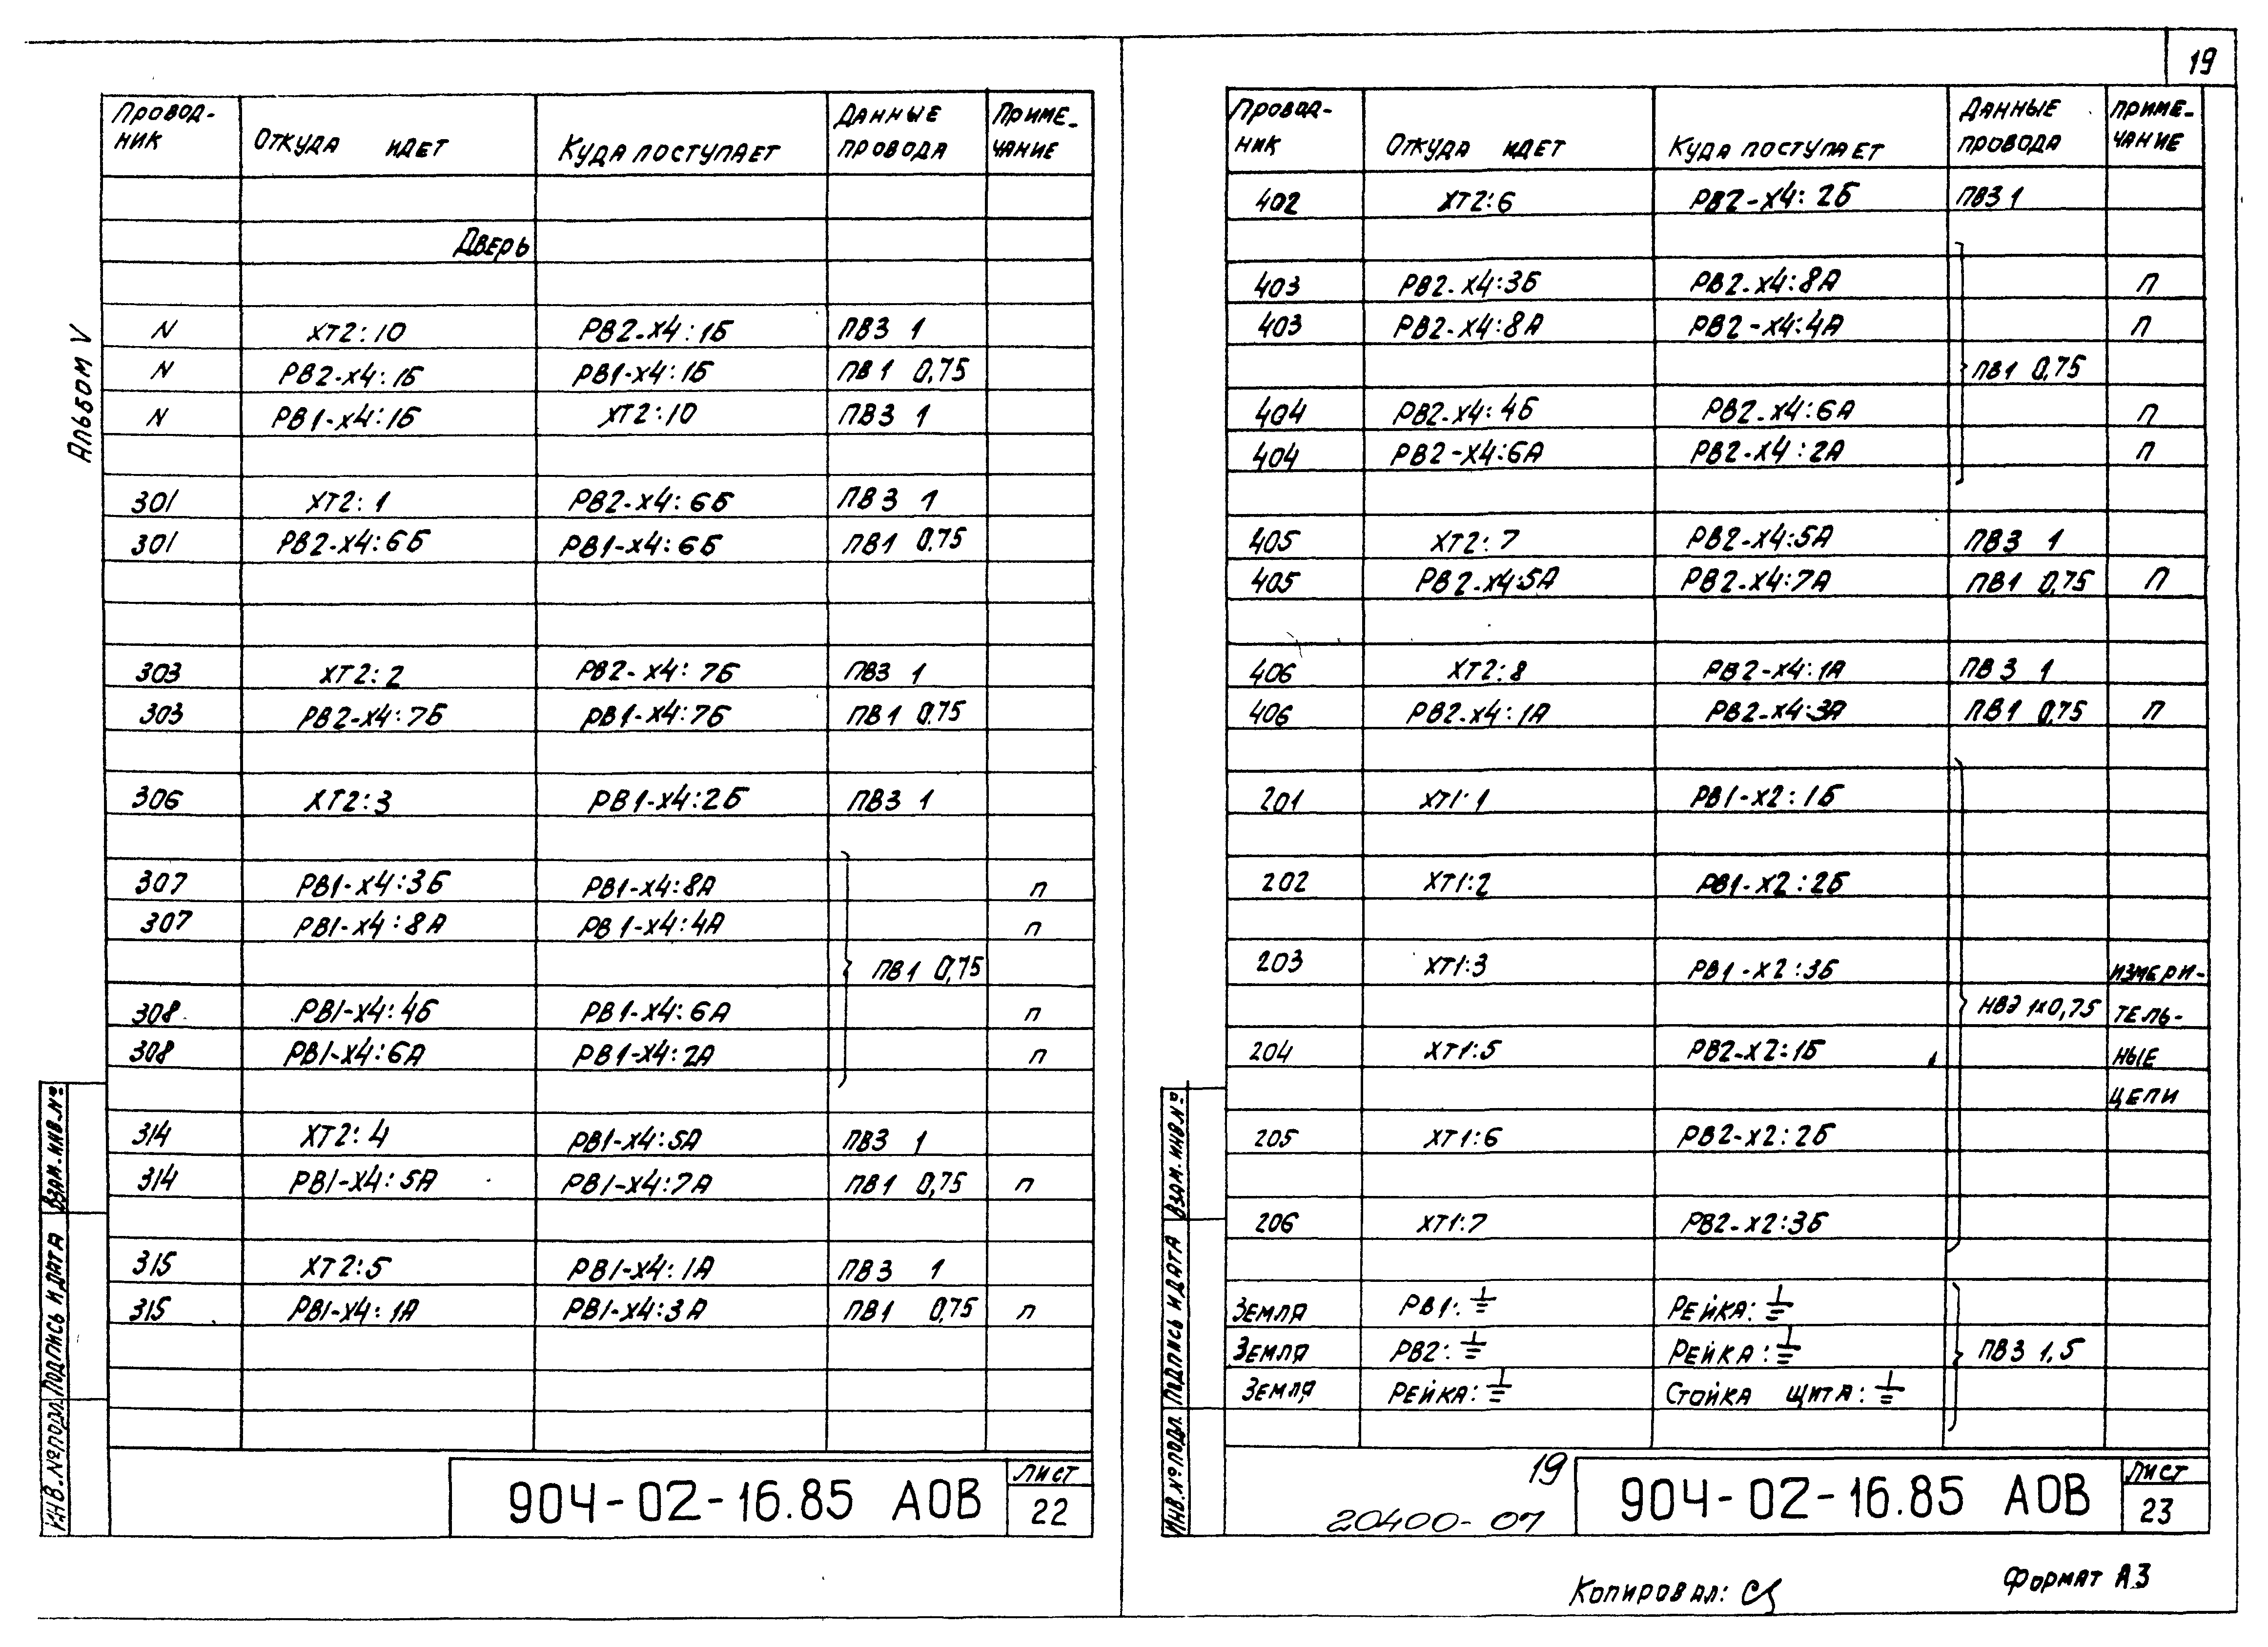 19
Альбом V
Провод-
ник Откуда идет Куда поступает Данные провода Приме-
чание
Дверь
N XT2:10 РВ2-Х4:1Б ПВ3 1
N РВ2-Х4:1Б РВ1-Х4:1Б ПВ1 0,75
N РВ1-Х4:1Б XT2:10 ПВ3 1
301 XT2:1 РВ2-Х4:6Б ПВ3 1
301 РВ2-Х4:6Б РВ1-Х4:6Б ПВ1 0,75
303 XT2:2 РВ2-Х4:7Б ПВ3 1
303 РВ2-Х4:7Б РВ1-Х4:7Б ПВ1 0,75
306 XT2:3 РВ1-Х4:2Б ПВ3 1
307 РВ1-Х4:3Б РВ1-Х4:8А п
307 РВ1-Х4:8А РВ1-Х4:4А п
ПВ1 0,75
308 РВ1-Х4:4Б РВ1-Х4:6А п
308 РВ1-Х4:6А РВ1-Х4:2А п
314 XT2:4 РВ1-Х4:5А ПВ3 1
314 РВ1-Х4:5А РВ1-Х4:7А ПВ1 0,75 п
315 XT2:5 РВ1-Х4:1А ПВ3 1
315 РВ1-Х4:1А РВ1-Х4:3А ПВ1 0,75 п
Инв.№подл. Подпись и дата Взам.инв.№
904-02-16.85 АОВ
Лист
22
Провод-
ник Откуда идет Куда поступает Данные провода Приме-
чание
402 XT2:6 РВ2-Х4:2Б ПВ3 1
403 РВ2-Х4:3Б РВ2-Х4:8А п
403 РВ2-Х4:8А РВ2-Х4:4А п
ПВ1 0,75
404 РВ2-Х4:4Б РВ2-Х4:6А п
404 РВ2-Х4:6А РВ2-Х4:2А п
405 XT2:7 РВ2-Х4:5А ПВ3 1
405 РВ2-Х4:5А РВ2-Х4:7А ПВ1 0,75 п
406 XT2:8 РВ2-Х4:1А ПВ3 1
406 РВ2-Х4:1А РВ2-Х4:3А ПВ1 0,75 п
201 XT1:1 РВ1-Х2:1Б
202 XT1:2 РВ1-Х2:2Б
203 XT1:3 РВ1-Х2:3Б Измери-
НВЭ 1х0,75 тель-
204 XT1:5 РВ2-Х2:1Б ные
цепи
205 XT1:6 РВ2-Х2:2Б
206 XT1:7 РВ2-Х2:3Б
Земля РВ1:⏚ Рейка:⏚
Земля РВ2:⏚ Рейка:⏚ ПВ3 1,5
Земля Рейка:⏚ Стойка щита:⏚
Инв.№подл. Подпись и дата Взам.инв.№
19
20400-07
904-02-16.85 АОВ
Лист
23
Копировал:
Формат А3